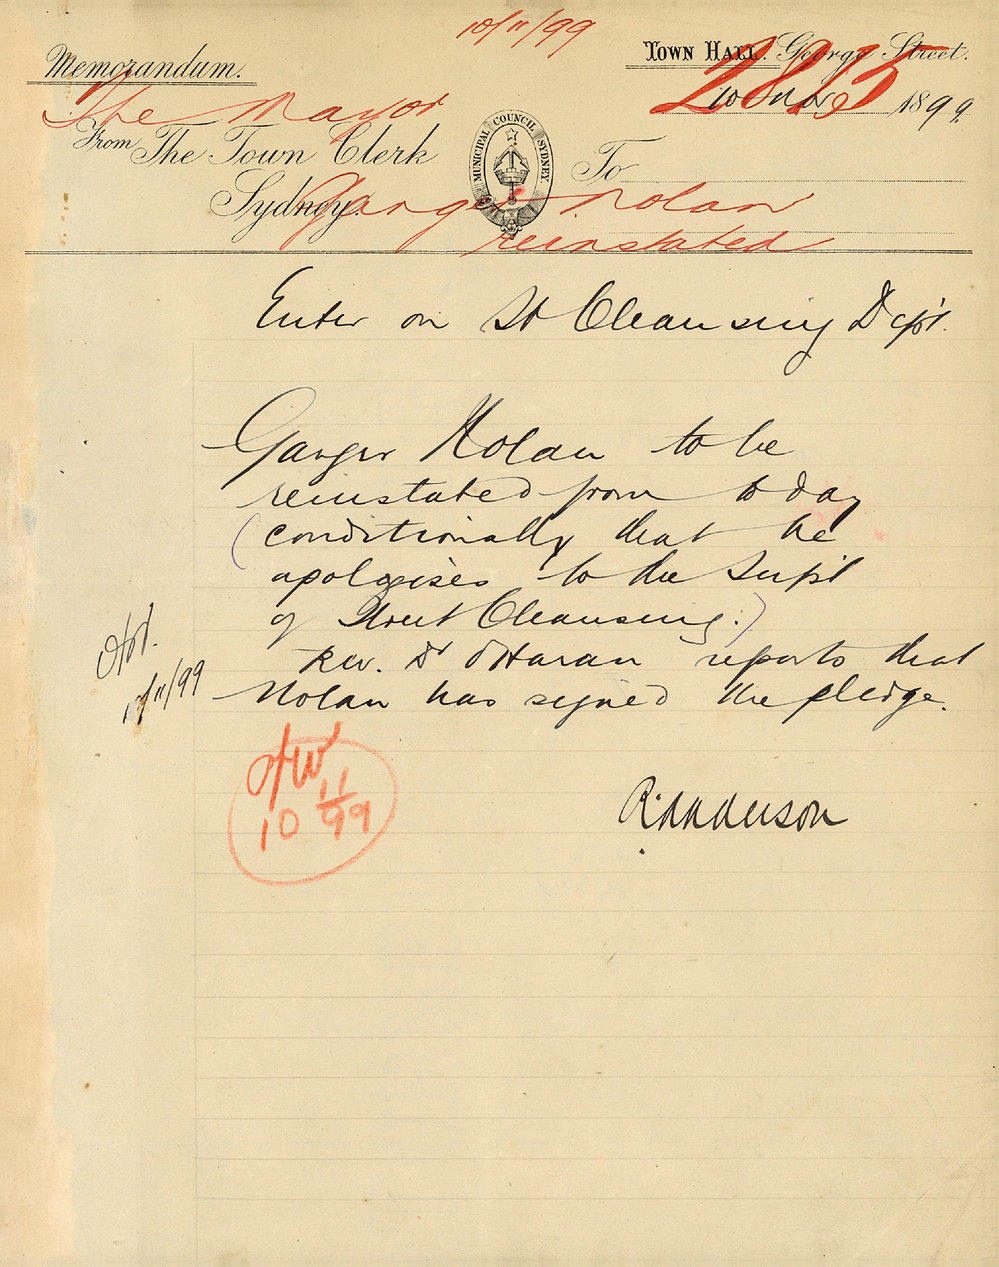 10/11/99
Memorandum.
Town Hall. George Street.
2815
10 Nov 1899
The Mayor
From The Town Clerk
Sydney.
MUNICIPAL COUNCIL SYDNEY
To
Ganger Nolan
reinstated
Enter on St Cleansing Dept.
Ganger Nolan to be
reinstated from to day
(conditionally that he
apologises to the Supt
of Street Cleansing.)
Rev. Dr O'Haran reports that
Nolan has signed the pledge.
10/11/99
10 11/99